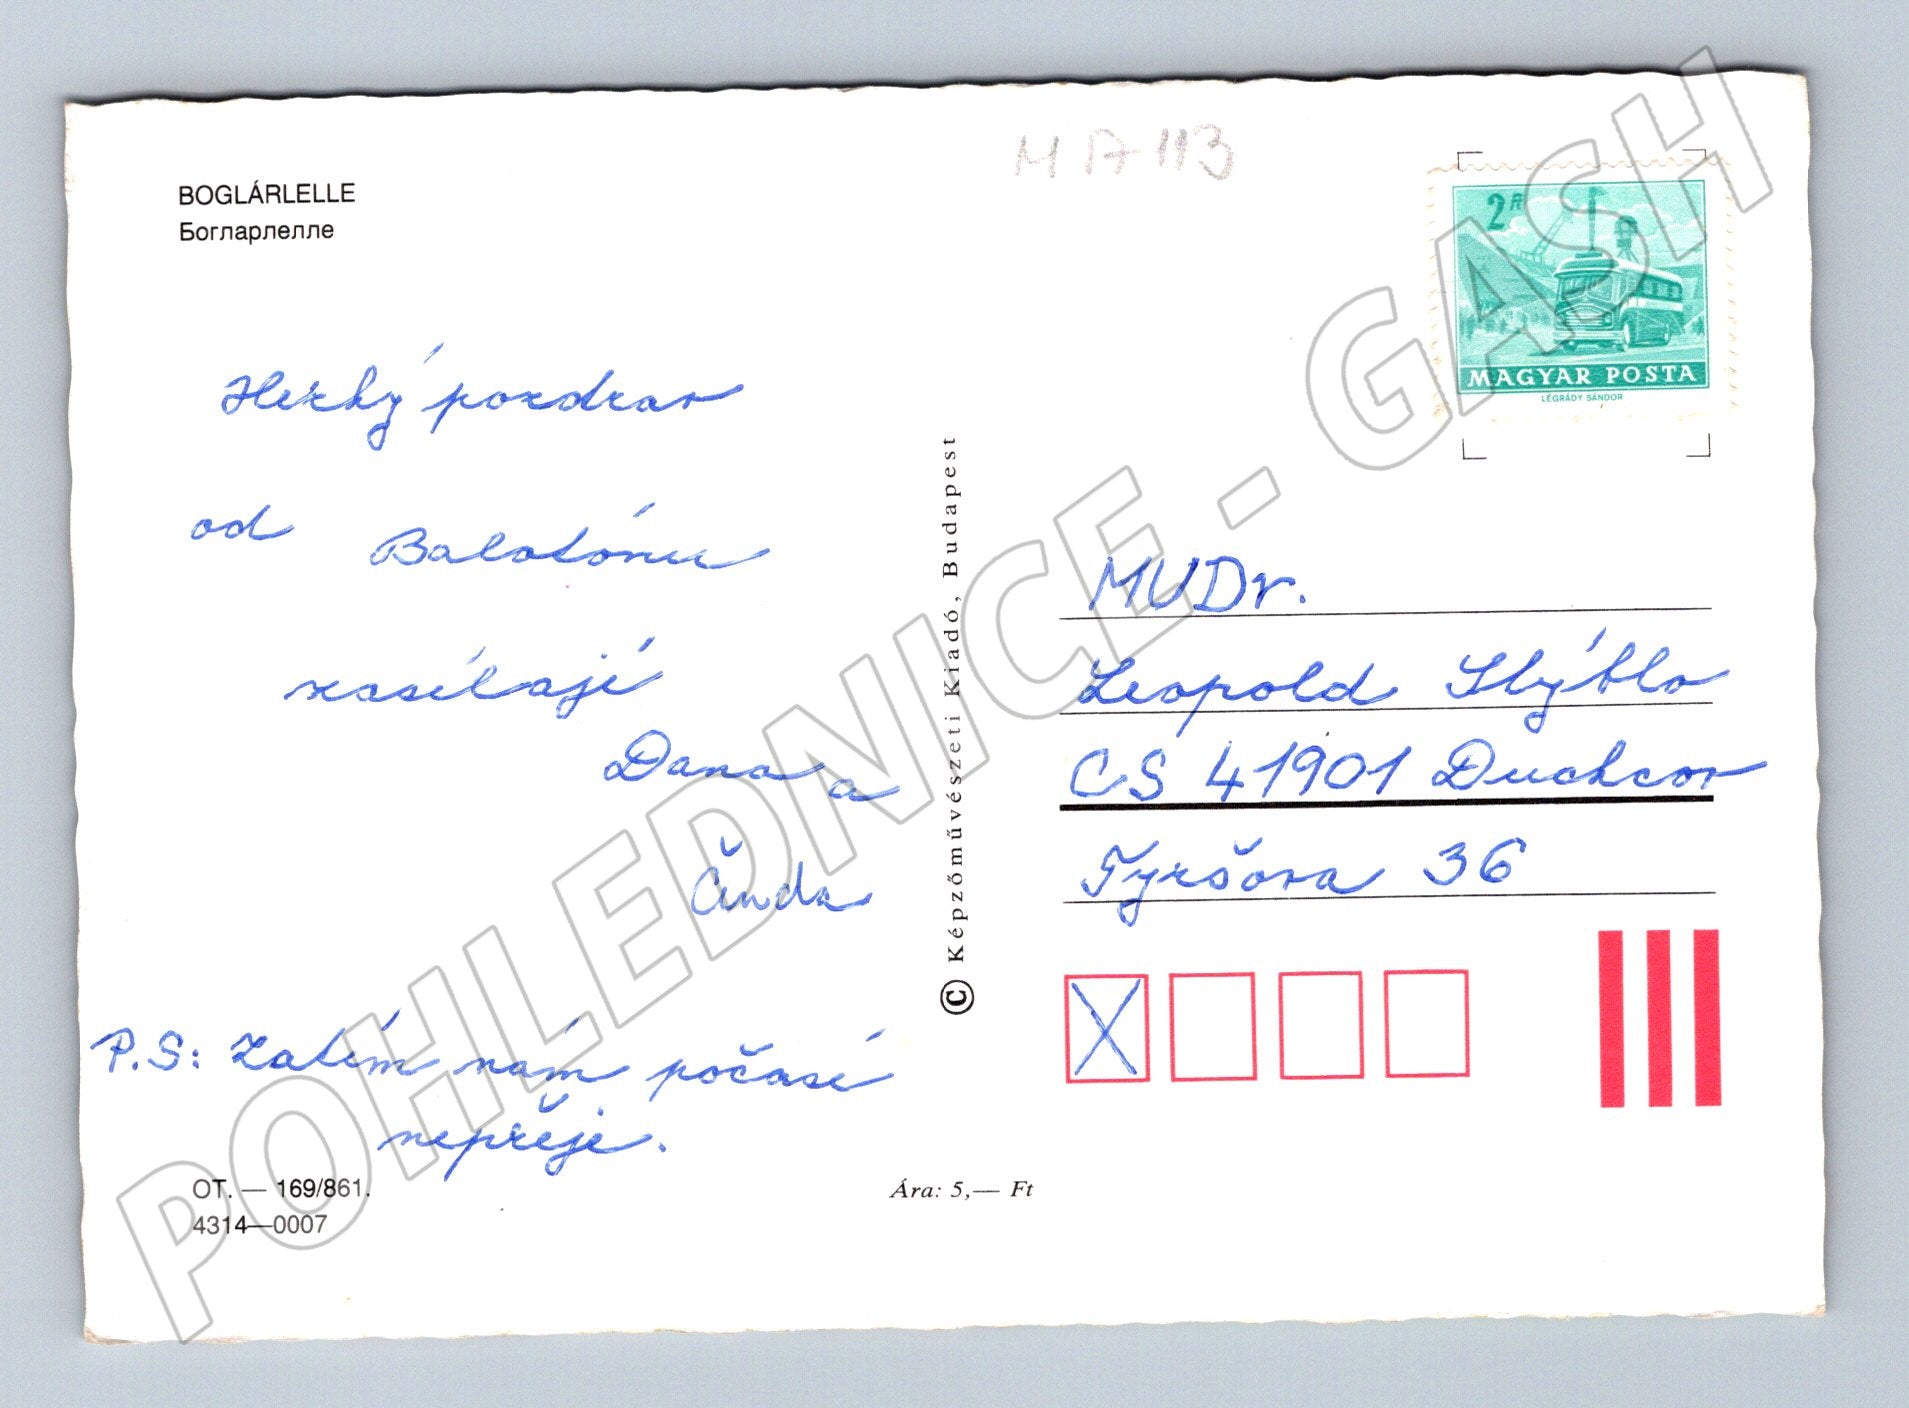 BOGLÁRLELLE
Богларлелле
MA 113
2 Ft
MAGYAR POSTA
LÉGRÁDY SÁNDOR
Hezký pozdrav
od Balatónu
zasílají
Dana a
Čenda
P.S: Zatím nám počasí
nepřeje.
OT. — 169/861.
4314—0007
Ára: 5,— Ft
© Képzőművészeti Kiadó, Budapest
MUDr.
Leopold Stýblo
CS 41901 Duchcov
Tyršova 36
X
POHLEDNICE - GASH